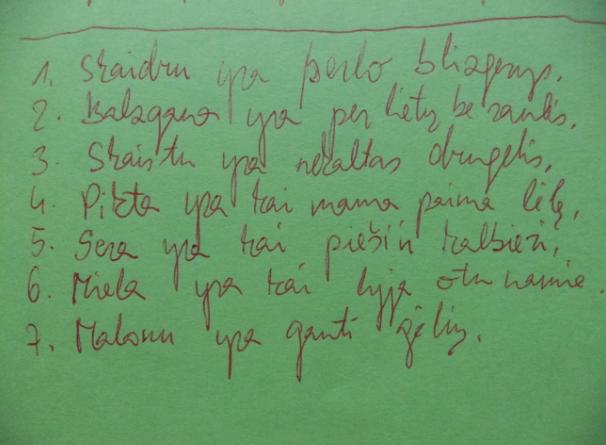 1. Skaidru yra perlo blizgesys.
2. Balzgana yra per lietų be saulės.
3. Skaistu yra nekaltas drugelis.
4. Pikta yra kai mama paima lėlę.
5. Gera yra kai pieši ir kalbiesi.
6. Miela yra kai lyja o tu namie.
7. Malonu yra gauti gėlių.